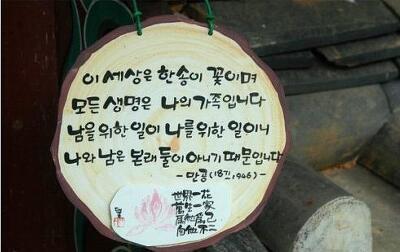 이 세상은 한송이 꽃이며
모든 생명은 나의 가족입니다
남을 위한 일이 나를 위한 일이니
나와 남은 본래 둘이 아니기 때문입니다
- 만공 (1871, 1946) -
世界一花
萬生一家
爲他爲己
自他不二